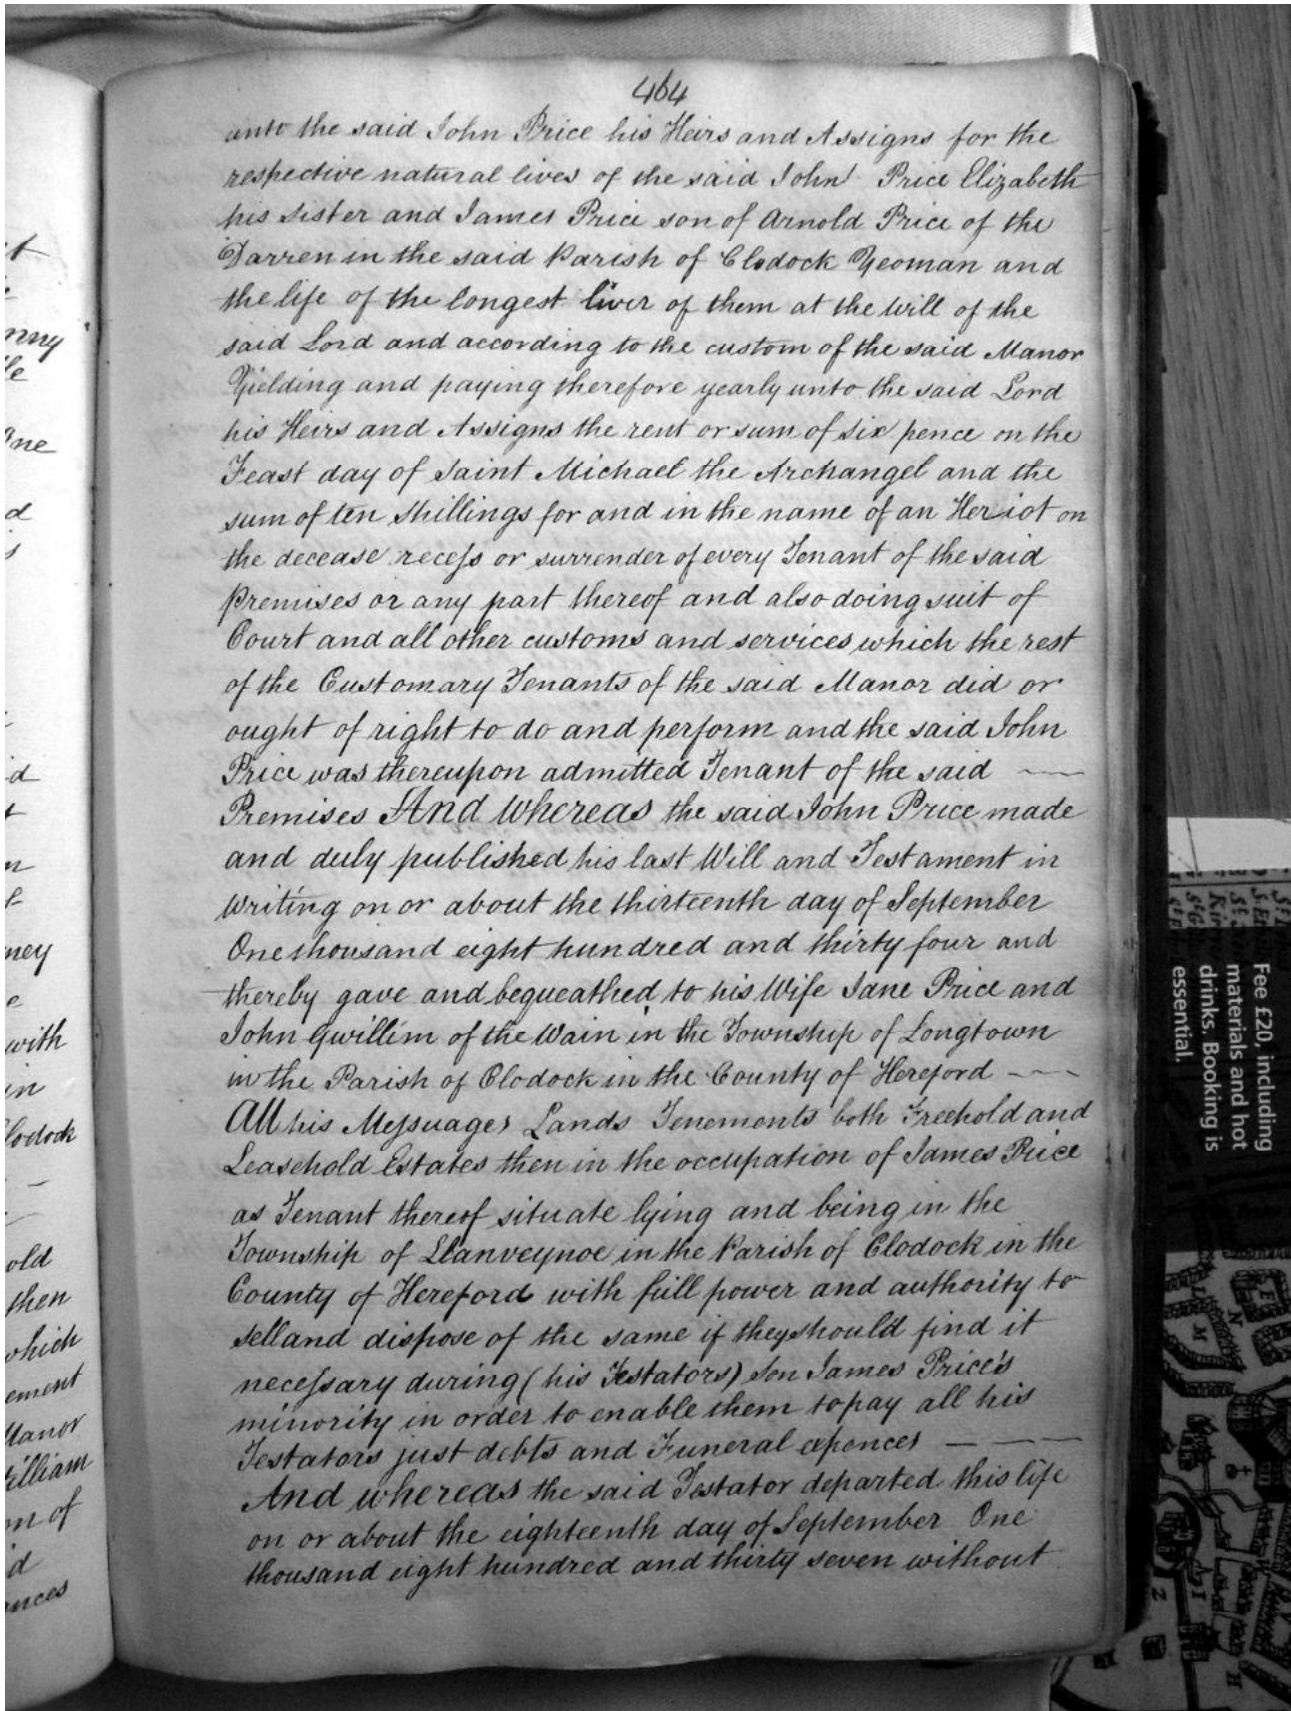 464
unto the said John Price his Heirs and Assigns for the
respective natural lives of the said John Price Elizabeth
his Sister and James Price son of Arnold Price of the
Darren in the said Parish of Clodock Yeoman and
the life of the longest liver of them at the Will of the
said Lord and according to the custom of the said Manor
Yielding and paying therefore yearly unto the said Lord
his Heirs and Assigns the rent or sum of six pence on the
Feast day of Saint Michael the Archangel and the
sum of ten Shillings for and in the name of an Heriot on
the decease recess or surrender of every Tenant of the said
Premises or any part thereof and also doing suit of
Court and all other customs and services which the rest
of the Customary Tenants of the said Manor did or
ought of right to do and perform and the said John
Price was thereupon admitted Tenant of the said
Premises And Whereas the said John Price made
and duly published his last Will and Testament in
Writing on or about the thirteenth day of September
One thousand eight hundred and thirty four and
thereby gave and bequeathed to his Wife Jane Price and
John Gwillim of the Wain in the Township of Longtown
in the Parish of Clodock in the County of Hereford
All his Messuages Lands Tenements both Freehold and
Leasehold Estates then in the occupation of James Price
as Tenant thereof situate lying and being in the
Township of Llanveynoe in the Parish of Clodock in the
County of Hereford with full power and authority to
sell and dispose of the same if they should find it
necessary during (his Testators) son James Price's
minority in order to enable them to pay all his
Testators just debts and Funeral expences
And whereas the said Testator departed this life
on or about the eighteenth day of September One
thousand eight hundred and thirty seven without
with
in
old
then
which
Fee £20, including
materials and hot
drinks. Booking is
essential.